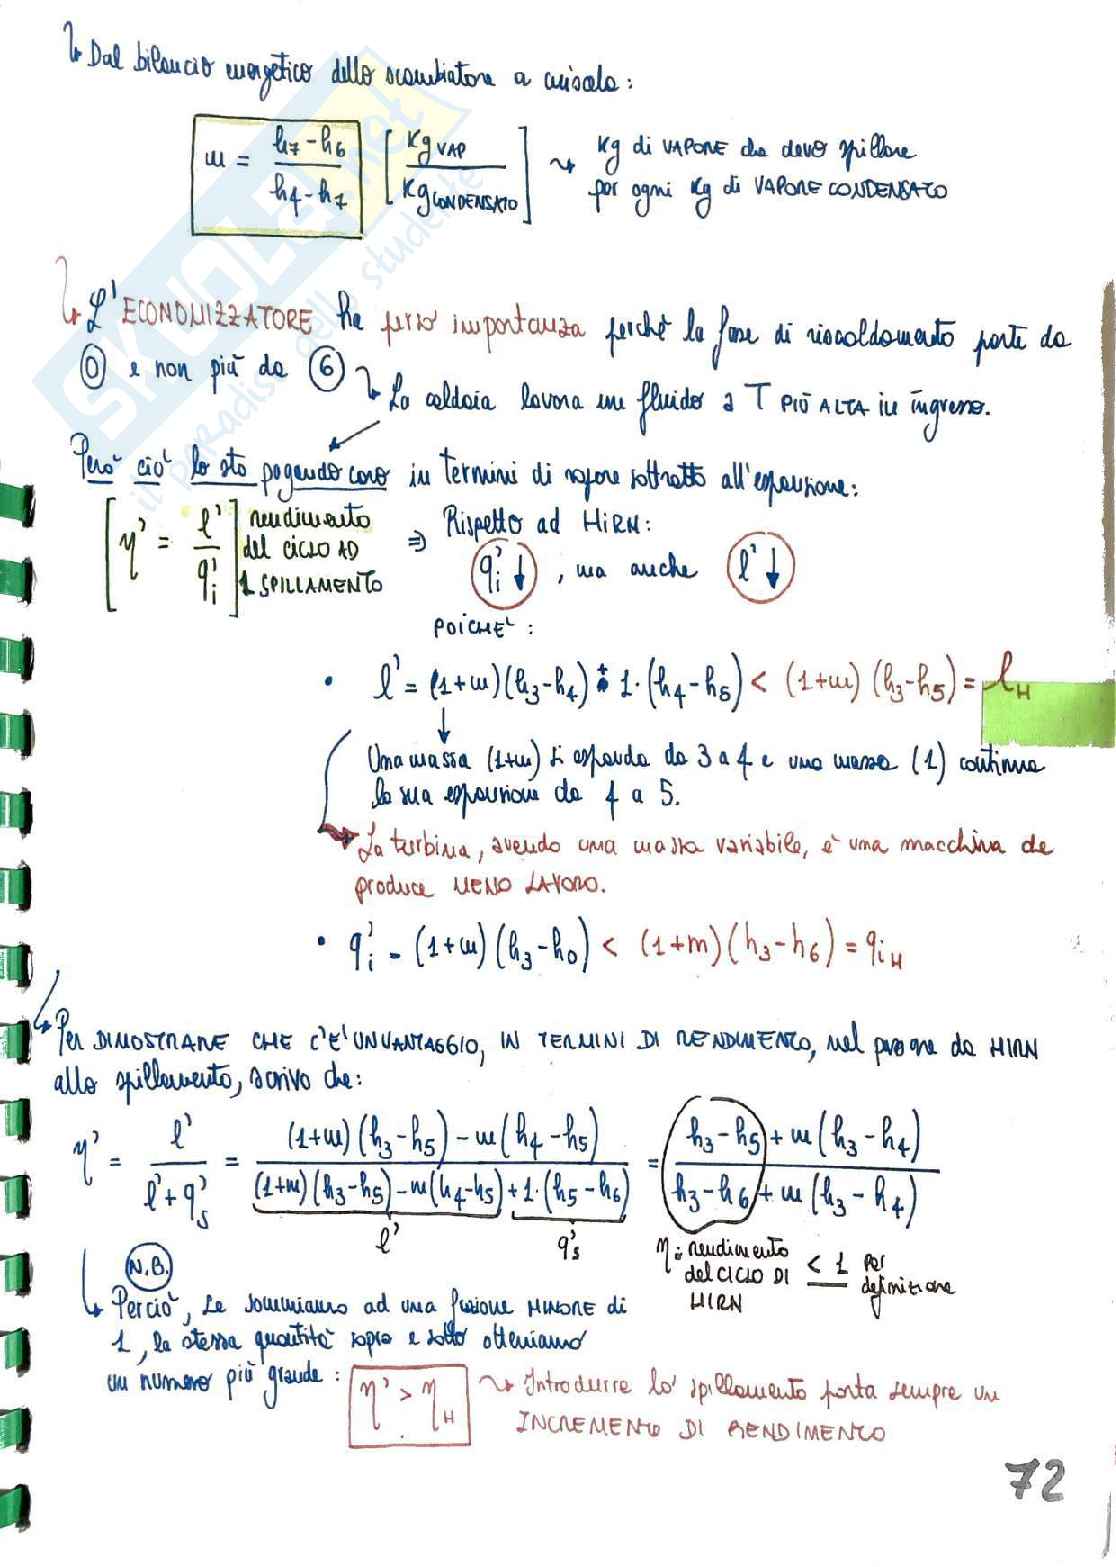 Dal bilancio energetico dello scambiatore a miscela:
m = (h7 - h6) / (h4 - h7) [Kg VAP / Kg CONDENSATO] ⤳ Kg di VAPORE che devo spillare
per ogni Kg di VAPORE CONDENSATO
L'ECONOMIZZATORE ha perso importanza perchè la fase di riscaldamento parte da
0 e non più da 6
La caldaia lavora un fluido a T PIÙ ALTA in ingresso.
Però ciò lo sto pagando caro in termini di vapore sottratto all'espansione:
[η' = l' / q'i] rendimento del CICLO AD 1 SPILLAMENTO ⇒ Rispetto ad HIRN:
q'i ↓, ma anche l' ↓
POICHE':
• l' = (1+m)(h3-h4) + 1·(h4-h5) < (1+m)(h3-h5) = lH
Una massa (1+m) si espande da 3 a 4 e una massa (1) continua
la sua espansione da 4 a 5.
La turbina, avendo una massa variabile, è una macchina che
produce MENO LAVORO.
• q'i = (1+m)(h3-h0) < (1+m)(h3-h6) = qiH
Per DIMOSTRARE CHE C'E' UN VANTAGGIO, IN TERMINI DI RENDIMENTO, nel passare da HIRN
allo spillamento, scrivo che:
η' = l' / (l' + q's) = ((1+m)(h3-h5) - m(h4-h5)) / ((1+m)(h3-h5) - m(h4-h5) + 1·(h5-h6)) = (h3-h5 + m(h3-h4)) / (h3-h6 + m(h3-h4))
l' q's
η: rendimento del CICLO DI HIRN < 1 per definizione
N.B.
Perciò, se sommiamo ad una frazione MINORE di
1, la stessa quantità sopra e sotto otteniamo
un numero più grande: η' > ηH ⤳ Introdurre lo spillamento porta sempre un
INCREMENTO DI RENDIMENTO
72
SKUOLA.net
il paradiso dello studente